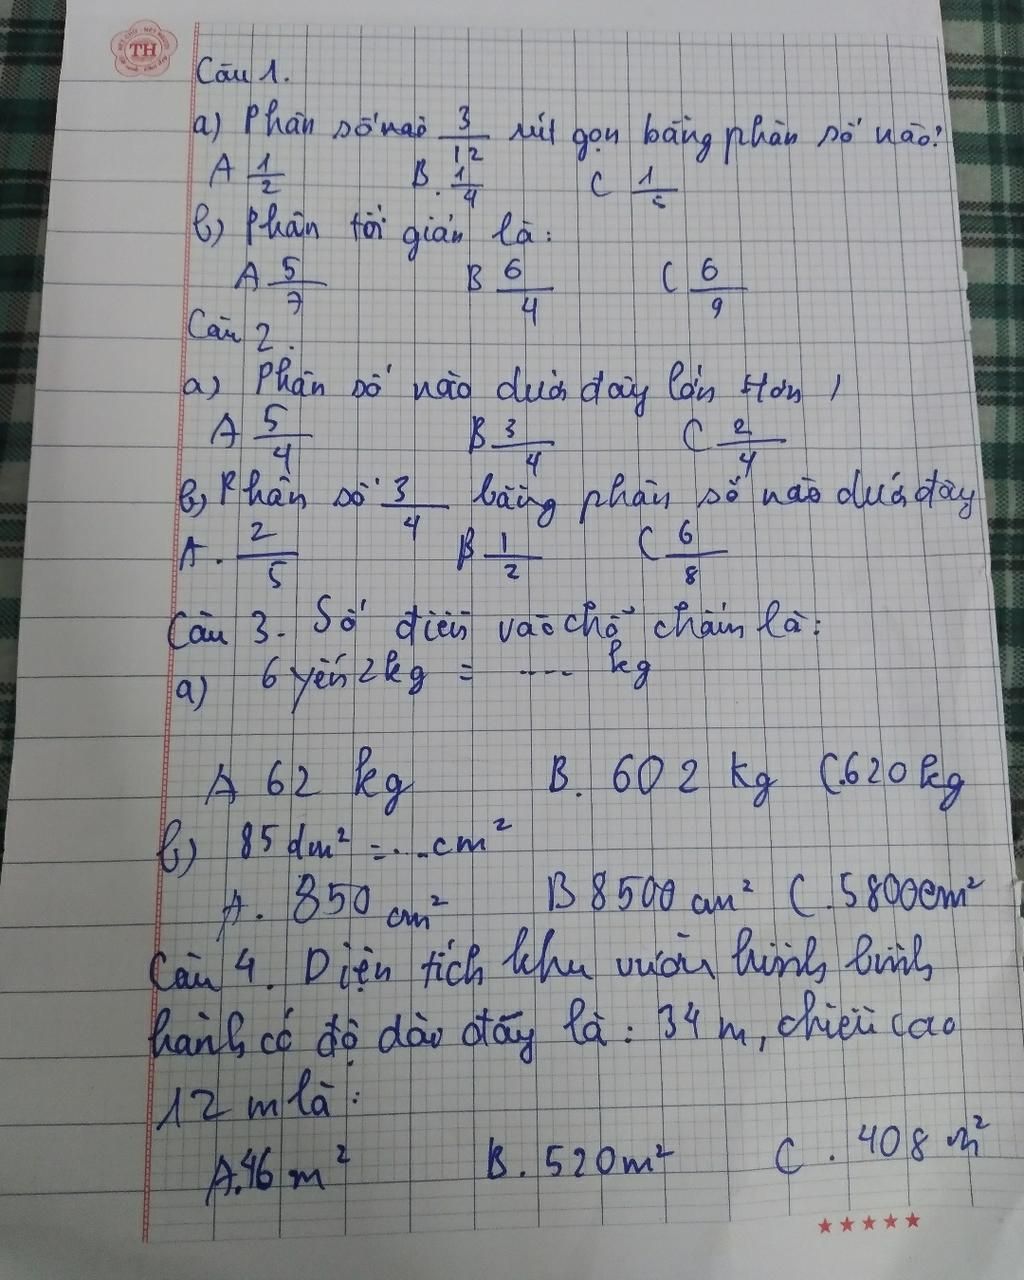 TH
Câu 1.
a) Phân số nào 3/12 rút gọn bằng phân số nào?
A 1/2 B. 1/4 C 1/5
b) Phân tối giản là:
A 5/7 B 6/4 C 6/9
Câu 2.
a) Phân số nào dưới đây lớn Hơn 1
A 5/4 B 3/4 C 2/4
b) Phân số 3/4 bằng phân số nào dưới đây
A. 2/5 B 1/2 C 6/8
Câu 3. Số điền vào chỗ chấm là:
a) 6 yến 2 kg = .... kg
A 62 kg B. 602 kg C. 620 kg
b) 85 dm² = .... cm²
A. 850 cm² B 8500 cm² C. 5800 cm²
Câu 4. Diện tích khu vườn hình bình
hành có độ dài đấy là: 34 m, chiều cao
12 m là:
A. 46 m² B. 520 m² C. 408 m²